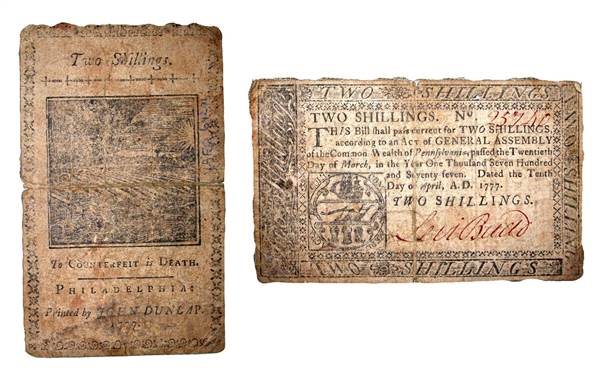 Two Shillings.
To COUNTERFEIT is DEATH.
PHILADELPHIA:
Printed by JOHN DUNLAP.
1777.
TWO SHILLINGS
TWO SHILLINGS. No.
THIS Bill shall pass current for TWO SHILLINGS,
according to an Act of GENERAL ASSEMBLY
of the Common Wealth of Pennsylvania, passed the Twentieth
Day of March, in the Year One Thousand Seven Hundred
and Seventy-seven. Dated the Tenth
Day of April, A.D. 1777.
TWO SHILLINGS.
Levi Budd
TWO SHILLINGS